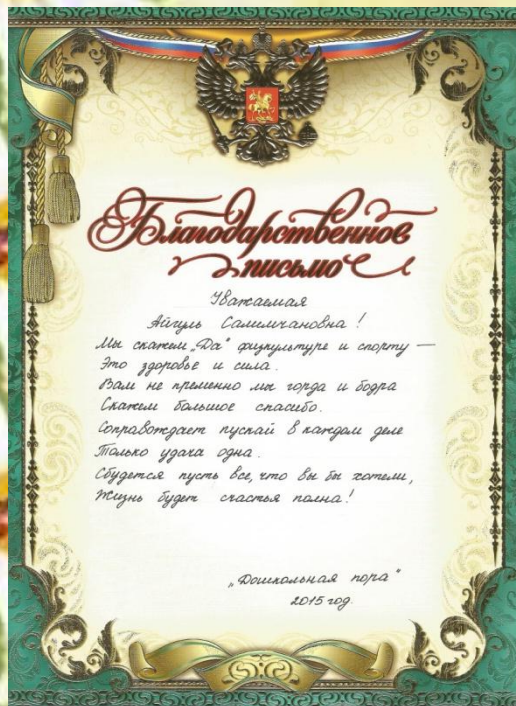 Благодарственное
письмо
Уважаемая
Айгуль Салимчановна!
Мы скажем „Да“ физкультуре и спорту —
Это здоровье и сила.
Вам не пременно мы горда и бодра
Скажем большое спасибо.
Соправождает пускай в каждом деле
Только удача одна.
Сбудется пусть все, что вы бы хотели,
Жизнь будет счастья полна!
„Дошкольная пора“
2015 год.